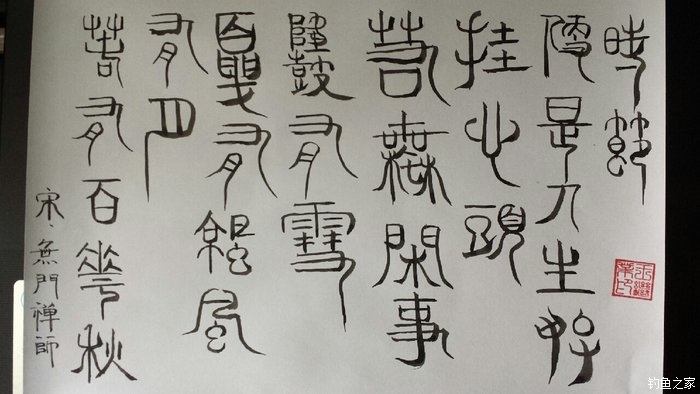 春有百花秋
有月
夏有涼風
有雪
若無閑事
挂心頭
便是人生好
時節
宋、無門禪師
钓鱼之家